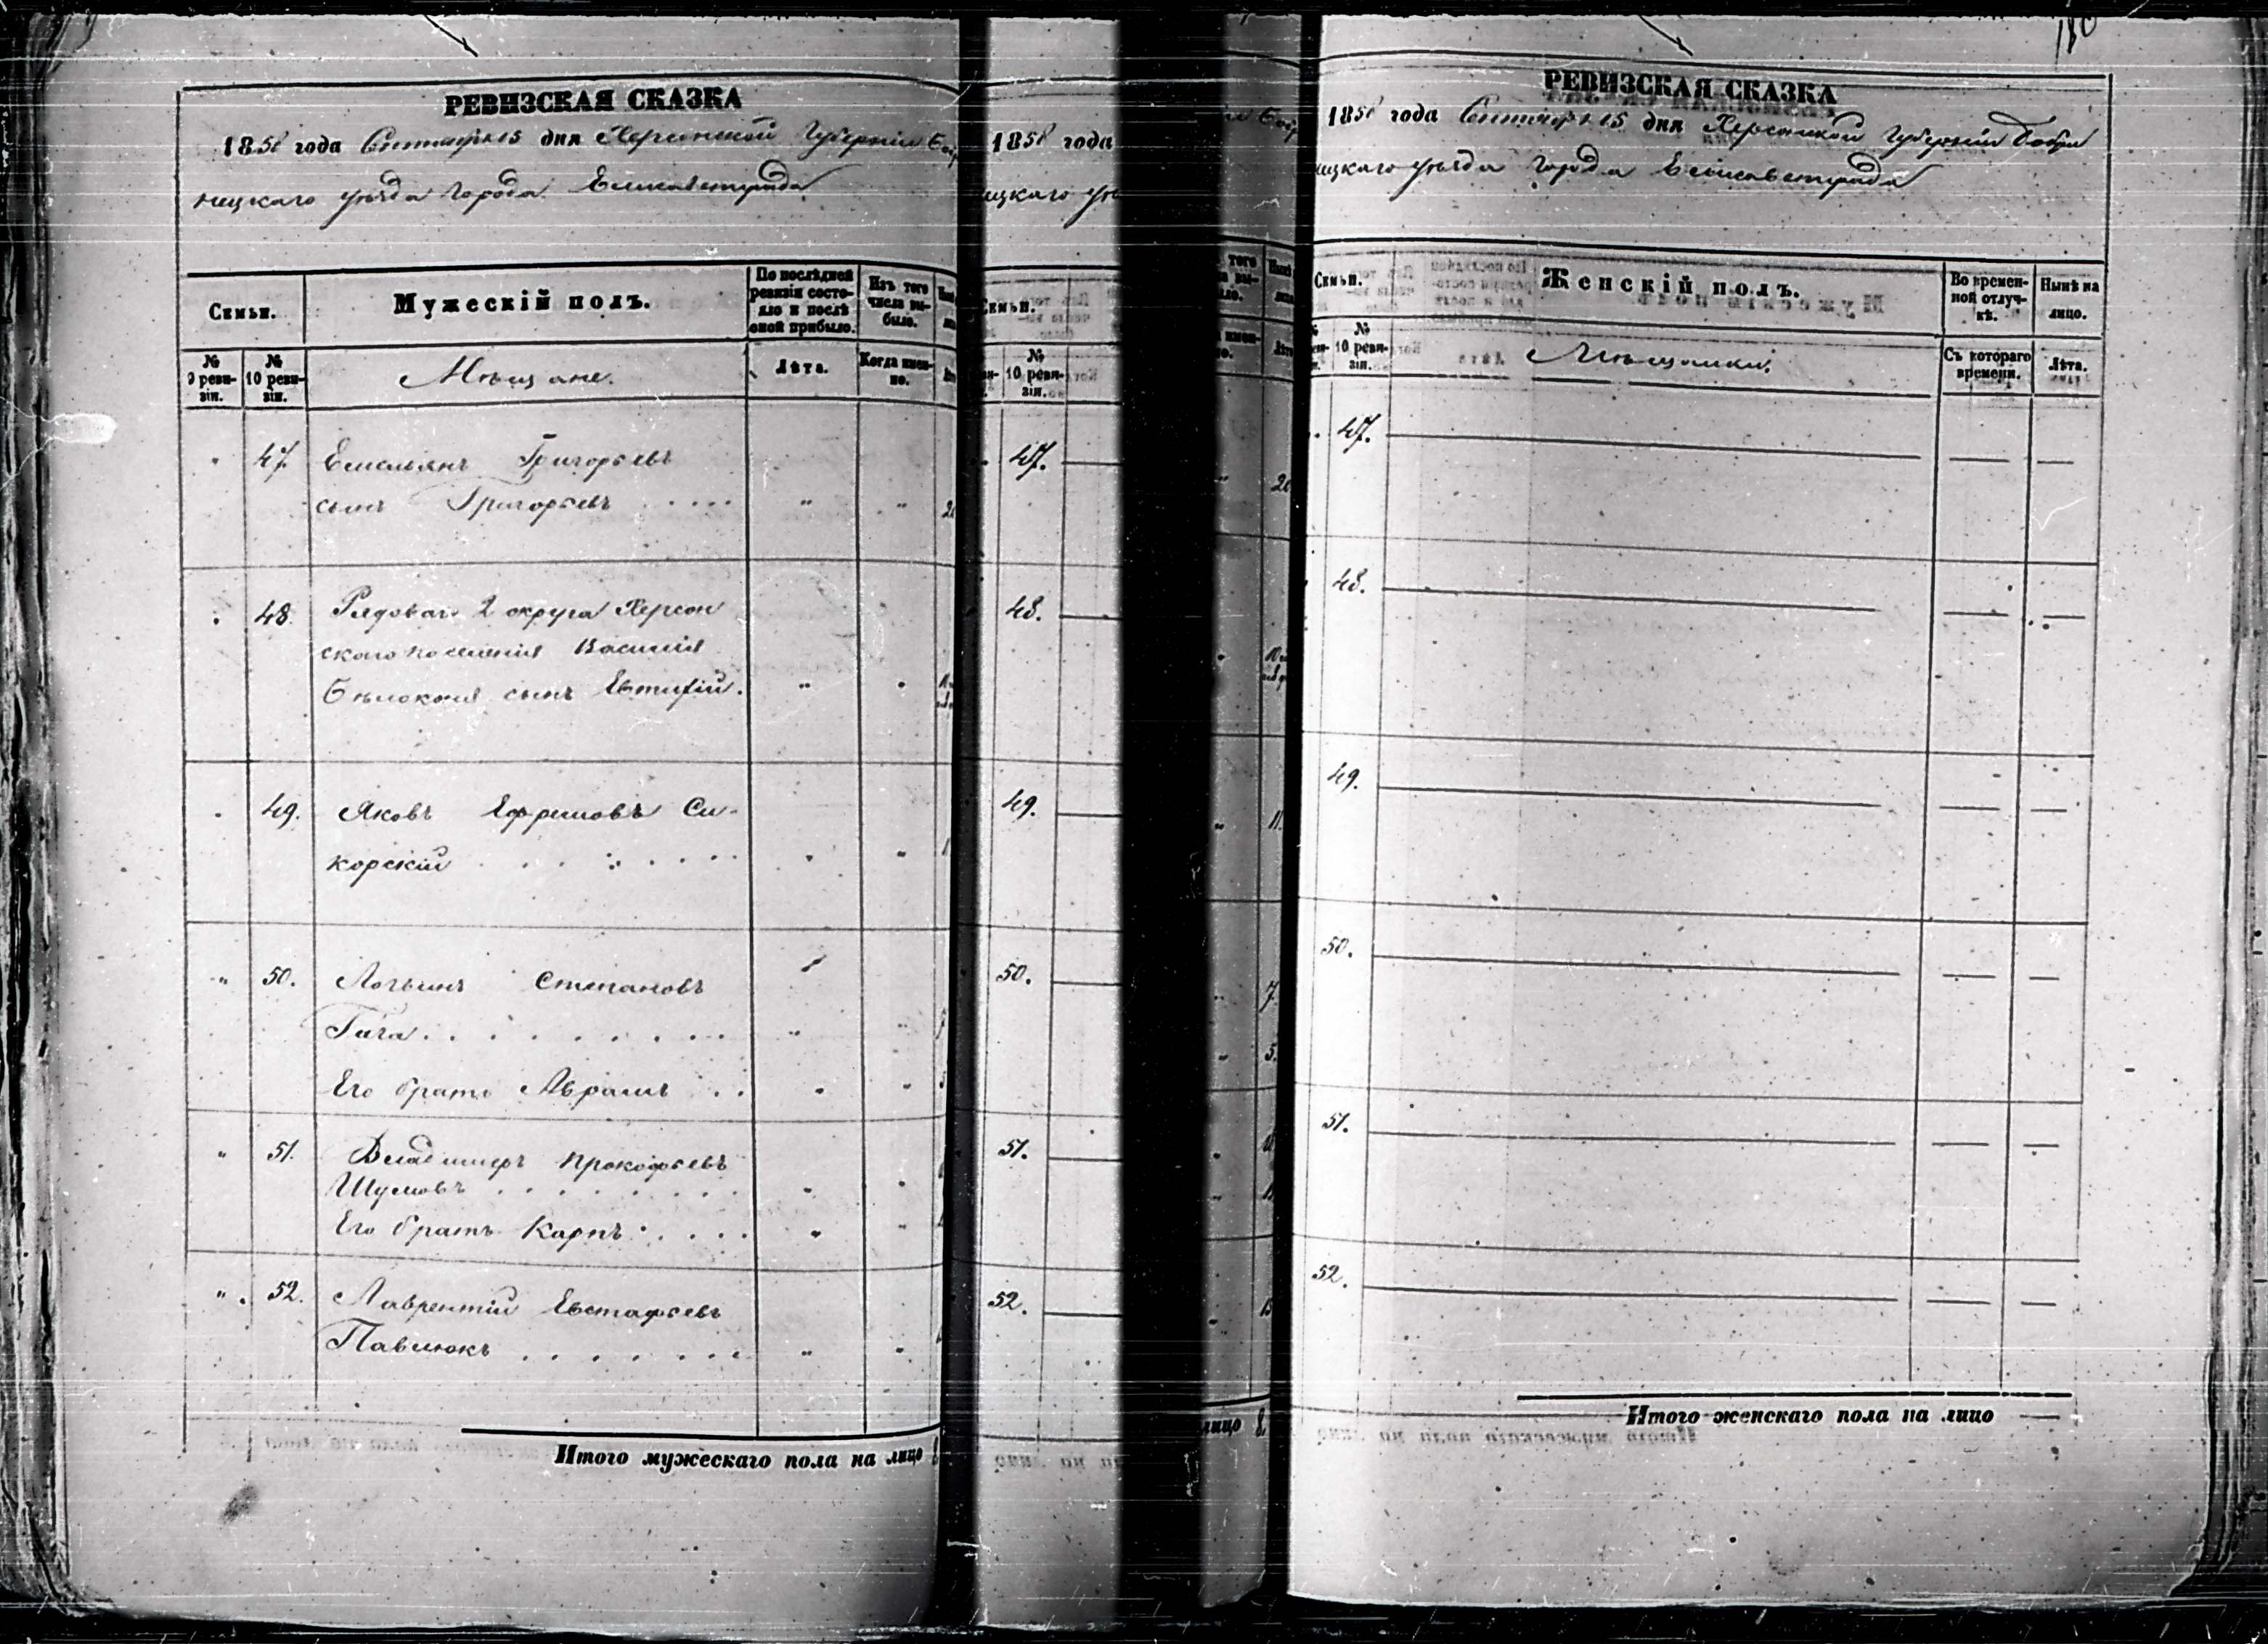 РЕВИЗСКАЯ СКАЗКА
1858 года Сентября 15 дня Херсонской Губерніи Боб
нецкаго уѣзда города Елисаветграда
Семьи.
Мужескій полъ.
По послѣдней ревизіи состояло и послѣ оной прибыло.
Изъ того числа выбыло.
№ 9 ревизіи.
№ 10 ревизіи.
Мѣщане.
Лѣта.
Когда именно.
" 47. Емельянъ Григорьевъ
сынъ Григорьевъ . . . . " "
48. Рядоваго 2 округа Херсон
скаго поселенія Василія
Бѣлоконя сынъ Евтифій. " "
49. Яковъ Ефремовъ Си-
корскій . . . . . . . " "
" 50. Логвинъ Степановъ
Гага . . . . . . . . . " "
Его братъ Абрамъ . . " "
" 51. Владимиръ Прокофьевъ
Шумовъ . . . . . . . . " "
Его братъ Карпъ . . . . " "
" 52. Лаврентій Евстафьевъ
Павлюкъ . . . . . . . " "
Итого мужескаго пола на лицо 8
1858 года
ицкаго уѣ
Семьи.
№ 10 ревизіи.
47.
48.
49.
50.
51.
52.
того
лицо 8
180
РЕВИЗСКАЯ СКАЗКА
1858 года Сентября 15 дня Херсонской Губерніи Бобри
нецкаго уѣзда города Елисаветграда
Семьи.
Женскій полъ.
Во временной отлучкѣ.
Нынѣ на лицо.
№ 10 ревизіи.
Мѣщанки.
Съ котораго времени.
Лѣта.
47. — — —
48. — — —
49. — — —
50. — — —
51. — — —
52. — — —
Итого женскаго пола на лицо —